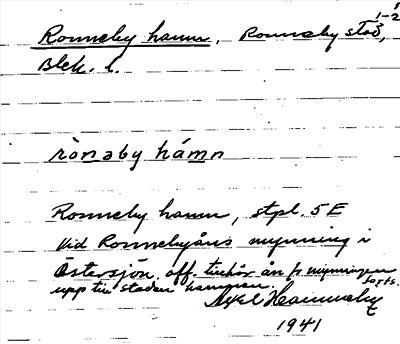 1-2
Ronneby hamn, Ronneby stad,
Blek. l.
rònəby hámn
Ronneby hamn, stpl. 5E
vid Ronnebyåns mynning i
Östersjön. Off. tillhör ån fr mynningen
upp till staden hamnen. forts.
Axel
1941